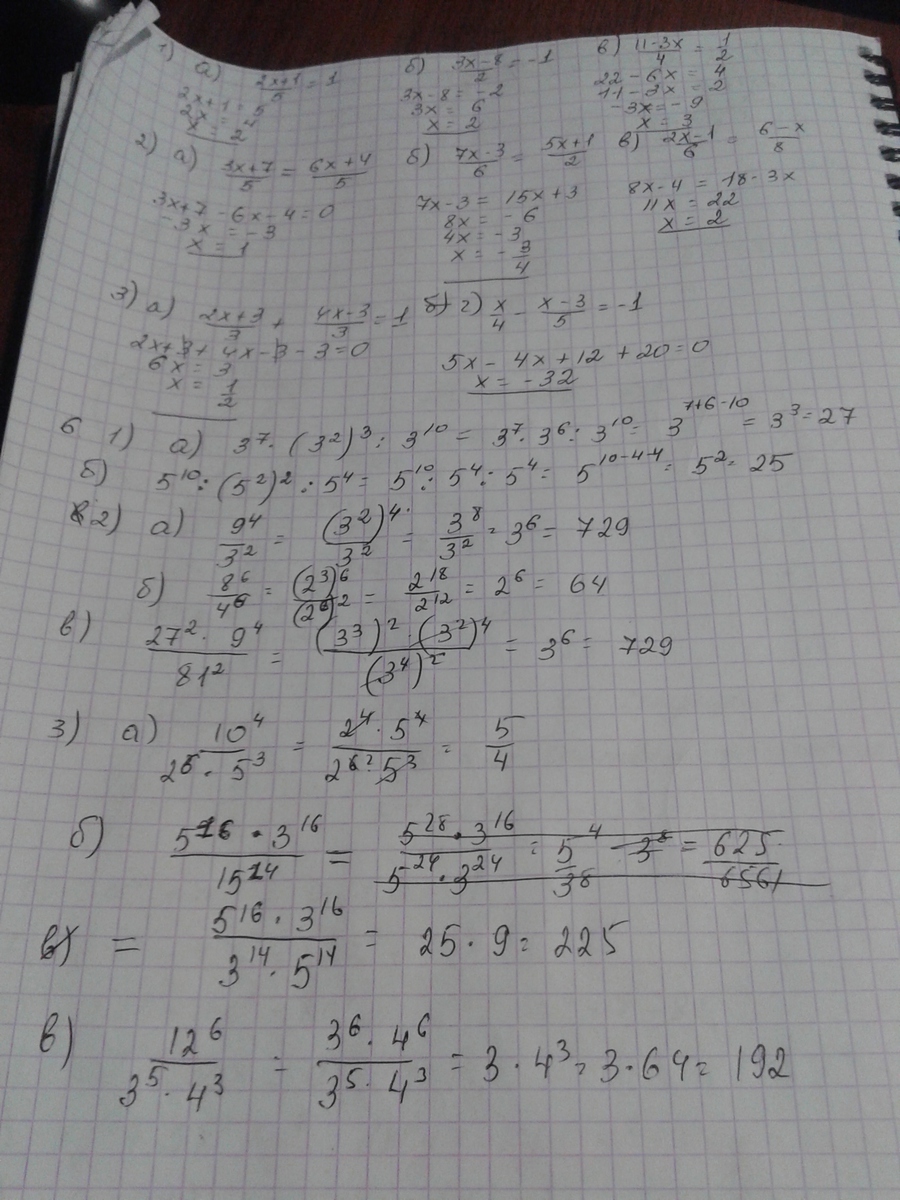 1) а) (2x+1)/5 = 1
2x+1 = 5
x = 2
б) (3x-8)/2 = -1
3x-8 = -2
3x = 6
x = 2
в) (11-3x)/4 = 1/2
22 - 6x = 4
11 - 3x = 2
-3x = -9
x = 3
2) а) (3x+7)/5 = (6x+4)/5
3x+7 - 6x - 4 = 0
-3x = -3
x = 1
б) (7x-3)/6 = (5x+1)/2
7x-3 = 15x+3
8x = -6
4x = -3
x = -3/4
в) (2x-1)/6 = (6-x)/8
8x-4 = 18-3x
11x = 22
x = 2
3) а) (2x+3)/3 + (4x-3)/3 = 1
2x+3+4x-3-3=0
6x = 3
x = 1/2
г) x/4 - (x-3)/5 = -1
5x - 4x+12+20=0
x = -32
6 1) а) 3⁷ · (3²)³ : 3¹⁰ = 3⁷ · 3⁶ : 3¹⁰ = 3⁷⁺⁶⁻¹⁰ = 3³ = 27
б) 5¹⁰ : (5²)² : 5⁴ = 5¹⁰ : 5⁴ : 5⁴ = 5¹⁰⁻⁴⁻⁴ = 5² = 25
2) а) 9⁴/3² = (3²)⁴/3² = 3⁸/3² = 3⁶ = 729
б) 8⁶/4⁶ = (2³)⁶/(2⁶)² = 2¹⁸/2¹² = 2⁶ = 64
в) (27² · 9⁴)/81² = ((3³)² · (3²)⁴)/(3⁴)² = 3⁶ = 729
3) а) 10⁴/(2⁶ · 5³) = (2⁴ · 5⁴)/(2⁶ · 5³) = 5/4
б) (5¹⁶ · 3¹⁶)/15¹⁴ = (5²⁸ · 3¹⁶)/(5²⁴ · 3²⁴) = 5⁴/3⁸ = 625/6561
= (5¹⁶ · 3¹⁶)/(3¹⁴ · 5¹⁴) = 25 · 9 = 225
в) 12⁶/(3⁵ · 4³) = (3⁶ · 4⁶)/(3⁵ · 4³) = 3 · 4³ = 3 · 64 = 192